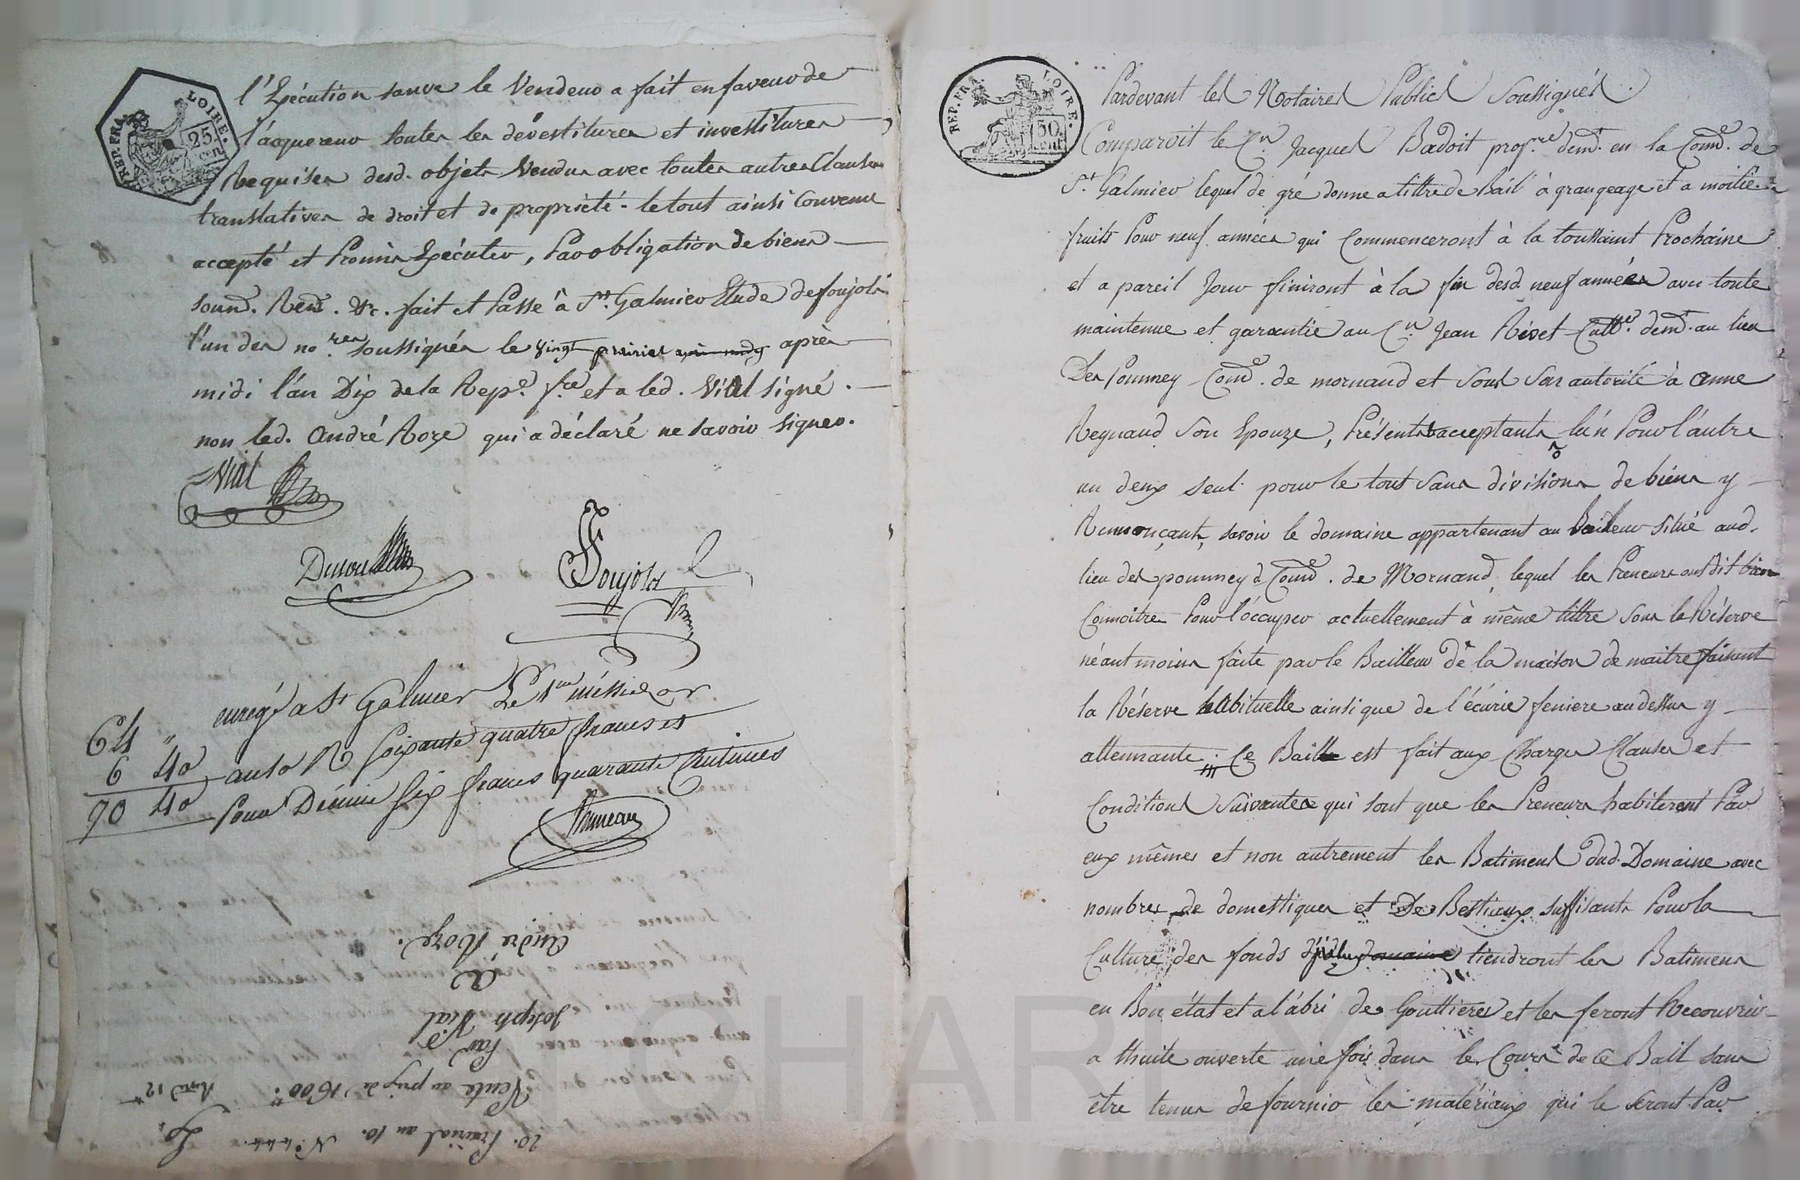 REP. FRA. LOIRE. 25 cen
l'Exécution sauve le Vendeur a fait en faveur de
l'acquereur toutes les dévestitures et investitures
Requises desd. objets Vendus avec toutes autres Clauses
translatives de droit et de propriété. le tout ainsi Convenu
accepté et Promis Exécuter, Par obligation de biens
soum. Ren. &c. fait et Passé à St. Galmier Etude de foujols
l'un des no.res soussignés le vingt prairial après
midi l'an Dix de la Rep.e f.se et a led. Vial signé.
non led. André Roze qui a déclaré ne savoir signer.
Vial
Foujols
enregé a St Galmier Le 1er méssidor
64 "
an 10 R Soixante quatre francs et
6 40
Pour Décime Six francs quarante Centimes
70 40
André Roze.
A
Joseph Vial
Par
Vente au prix de 1600.
20. Prairial an 10.
REP. FRA. LOIRE. 50 cen
Pardevant les Notaires Publics Soussignés.
Comparoit le C.en Jacques Badoit prop.re dem.t en la Com.e de
St. Galmier lequel de gré donne a tittre de bail à grangeage et a moitié
fruits Pour neuf années qui Commenceront à la toussaint Prochaine
et a pareil Jour finiront à la fin desd. neuf années avec toute
maintenue et garantie au C.en Jean Rivet Cult.r dem.t au lieu
Des Pommey Com.e de mornand et sous Son autorité à anne
Reynaud Son Epouze, Présents acceptants lún Pour l'autre
un deux seul pour le tout sans divisions de biens y
Renonçants, savoir le domaine appartenant au Bailleur Situé aud.
lieu des pommeys Com.e de Mornand, lequel les Preneurs ont dit bien
Connoitre Pour l'occuper actuellement à même tittre sous la Réserve
néantmoins faite par le Bailleur de la maison de maitre faisant
la Réserve habituelle ainsi que de l'écurie feniere au dessus y
attennante; Ce Bail est fait aux Charges Clauses et
Conditions Suivantes qui sont que les Preneurs habiteront Par
eux mêmes et non autrement les Batiments dud. Domaine avec
nombres de domestiques et De Bestiaux suffisants Pour la
Culture des fonds tiendront les Batimens
en Bon état et a l'ábri des Gouttieres et les feront Recouvrir
a thuile ouverte une fois dans le Cours de ce Bail sans
être tenus de fournir les matériaux qui le seront Par